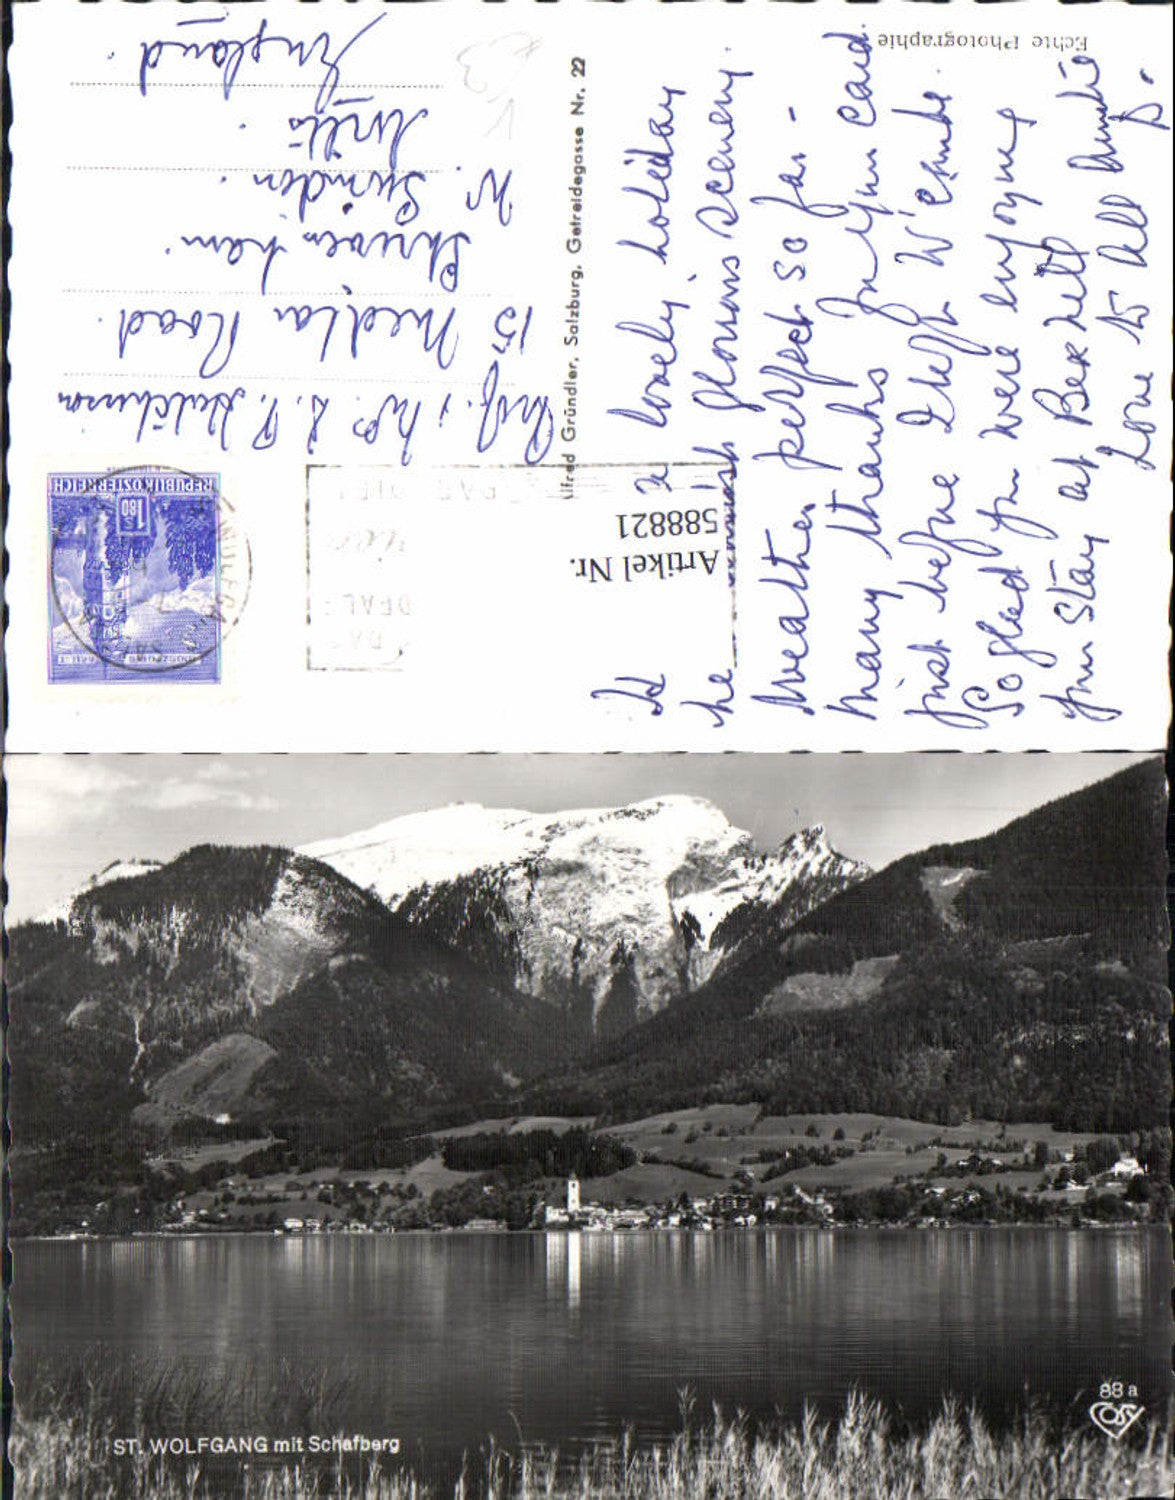 Echte Photographie
Alfred Gründler, Salzburg, Getreidegasse Nr. 22
REPUBLIK ÖSTERREICH
S 1.80
Artikel Nr.
588821
15 Medlar Road.
Shrivenham.
Nr. Swindon.
Wilts.
England.
a lovely holiday
glorious scenery.
Weather perfect so far -
Many thanks for your card.
just before I left W'Combe.
So glad you were enjoying
your stay at Bexhill
Love to all
D.
ST. WOLFGANG mit Schafberg
88 a
COSY